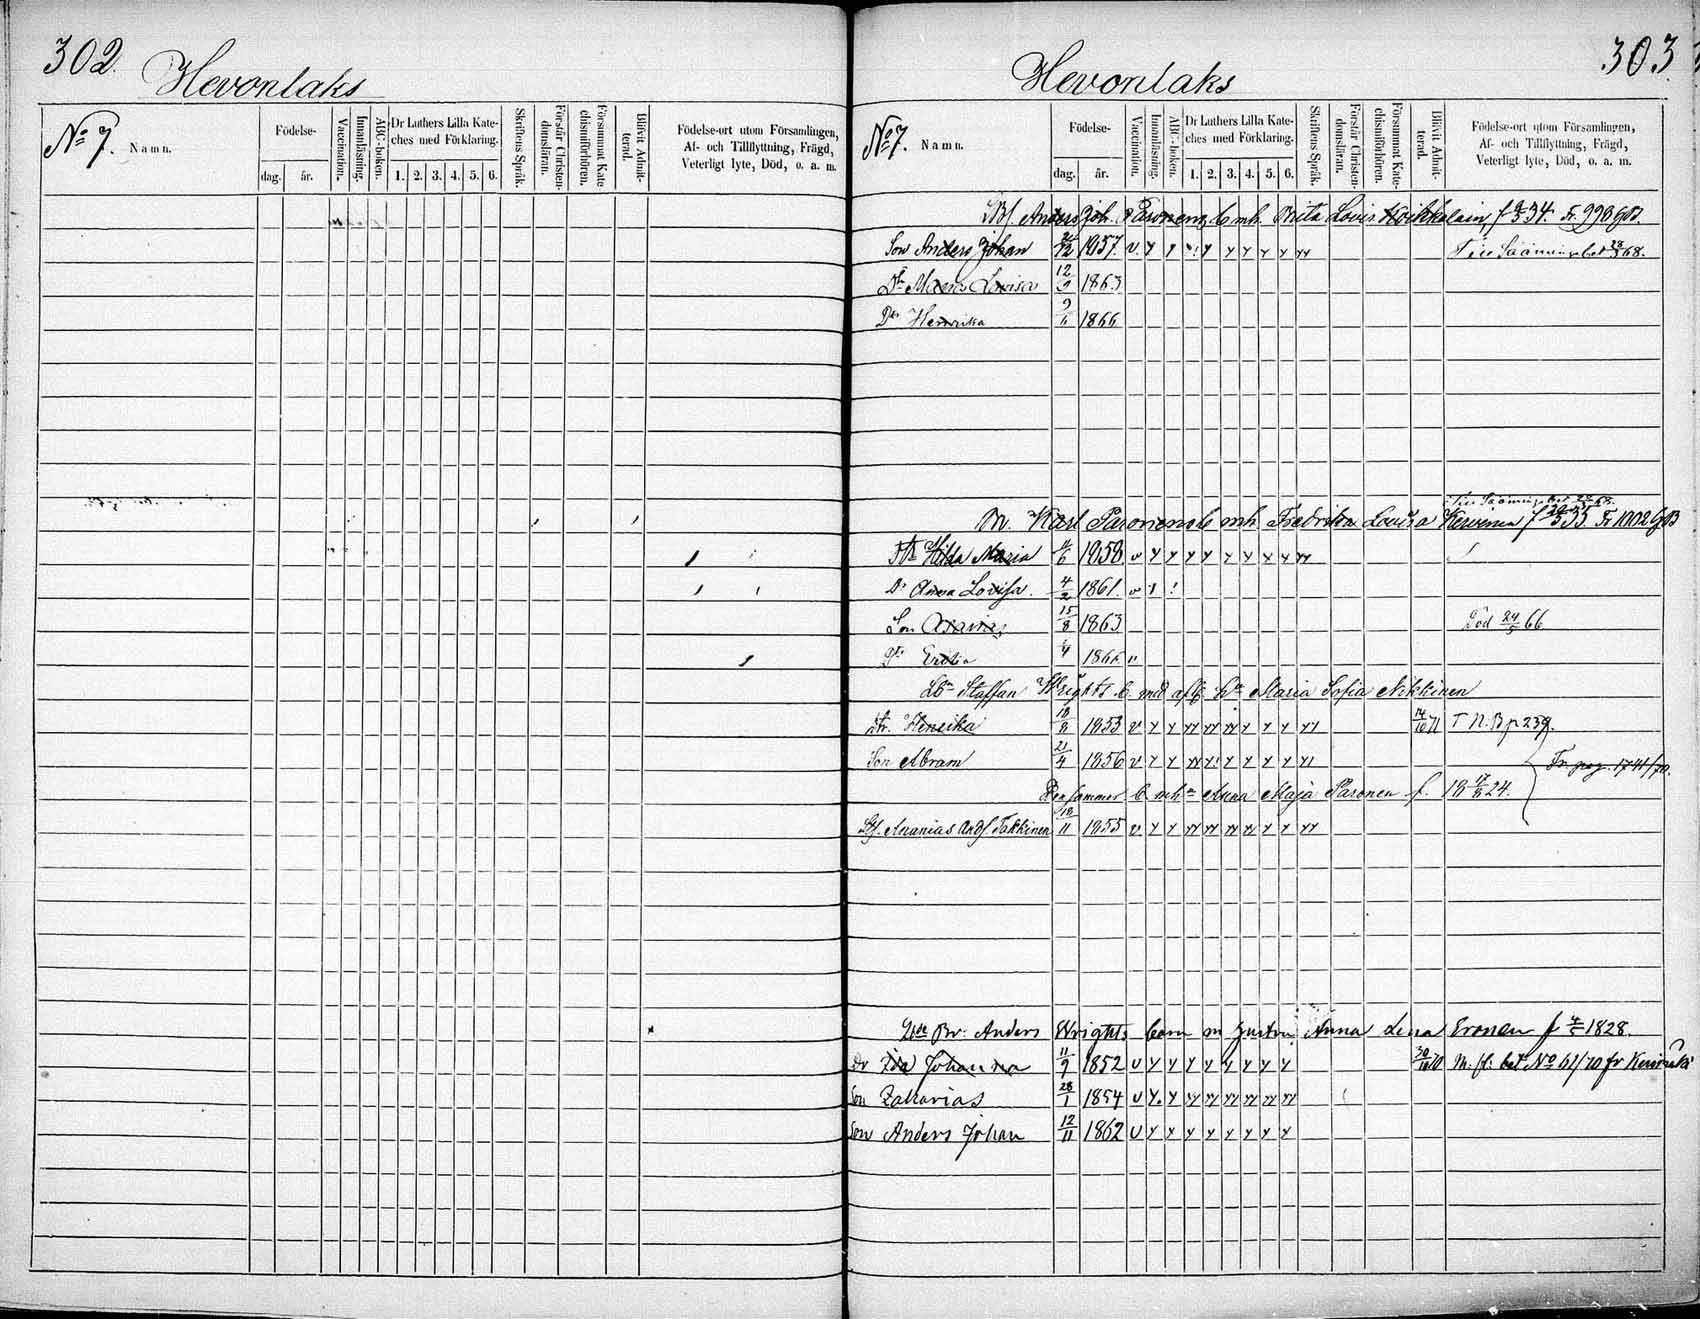 302.
Hevonlaks
No 7.
Namn.
Födelse-
dag.
år.
Vaccination.
Innanläsning.
ABC-boken.
Dr Luthers Lilla Kate-
ches med Förklaring.
1. 2. 3. 4. 5. 6.
Skriftens Språk.
Förstår Christen-
domsläran.
Försummat Kate
chismiförhören.
Blifvit Admit-
terad.
Födelse-ort utom Församlingen,
Af- och Tillflyttning, Frägd,
Veterligt lyte, Död, o. a. m.
303
Hevonlaks
No 7.
Namn.
Födelse-
dag.
år.
Vaccination.
Innanläsning.
ABC-boken.
Dr Luthers Lilla Kate-
ches med Förklaring.
1. 2. 3. 4. 5. 6.
Skriftens Språk.
Förstår Christen-
domsläran.
Försummat Kate-
chismiförhören.
Blifvit Admit-
terad.
Födelse-ort utom Församlingen,
Af- och Tillflyttning, Frägd,
Veterligt lyte, Död, o. a. m.
Anders Joh. Paronens b. m h. Brita Lovis. f 34. Fr. 998
Son Anders Johan 1857. v. y y y y y y y yy 28/3 68.
Dr Maria Lovisa 12/9 1863
Dr Henrika 1866
Karl Paronens b mh. Fredrika Lovisa f 35 Fr 1002
Dr Hilda Maria 1858. v y y y y y y y y yy
Dr Anna Lovisa. 4/2 1861. v
Son 15/8 1863 Död 24/5 66
Dr 1866 v
Staffan Wrights b. med h Maria Sofia Nikkinen
Dr. Henrika 18/8 1853 v y y yy yy yy y y y yy 71 T N.B p 239.
Son Abram 21/4 1856 v y y yy y y y y y yy Fr. pag. 1741/70.
b. mh Anna Maja Paronen f. 18 24.
Ananias And Takkinen 18/11 1855 v y y yy yy yy yy y y yy
Br. Anders Wrights barn m hustru Anna Lena Eronen f 1828.
Dr Ida Johanna 11/9 1852 v y y y y y y y y 70 M. fl. bet No 61/70 fr
Son Zakarias 28/1 1854 v y. y yy yy yy yy yy yy
Son Anders Johan 12/11 1862 v y y y y y y y y